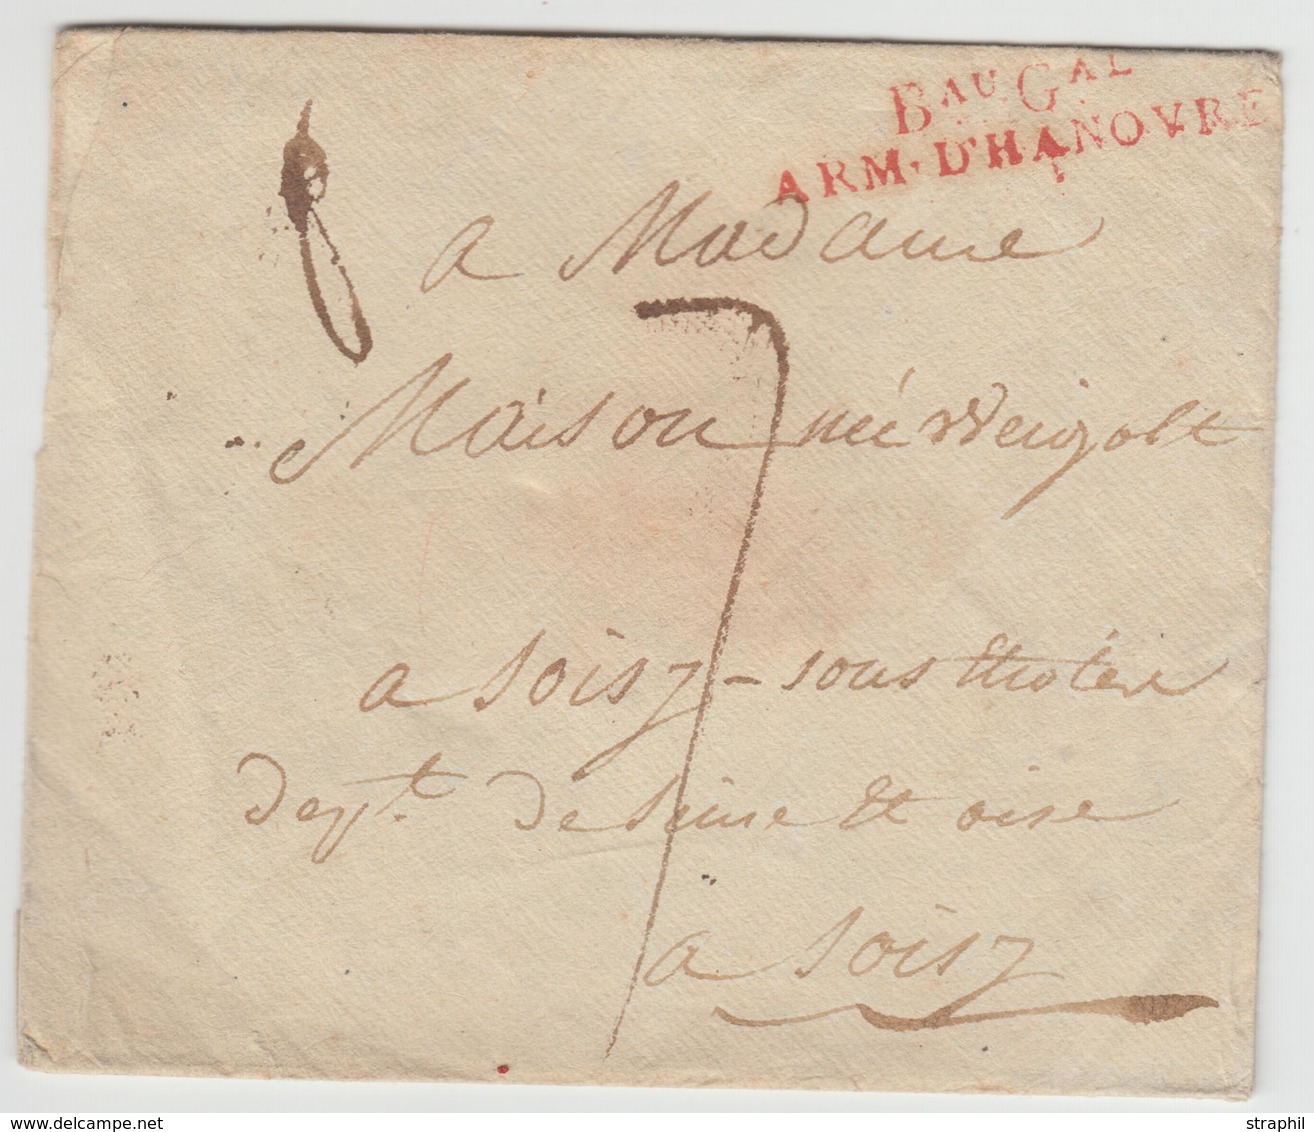 BAU GAL
ARM. D'HANOVRE
a Madame
7
Maison née Weigolt
a Soisy - sous Etiolex
Dept. De Seine et oise
a Soisy
delcampe.net
straphil